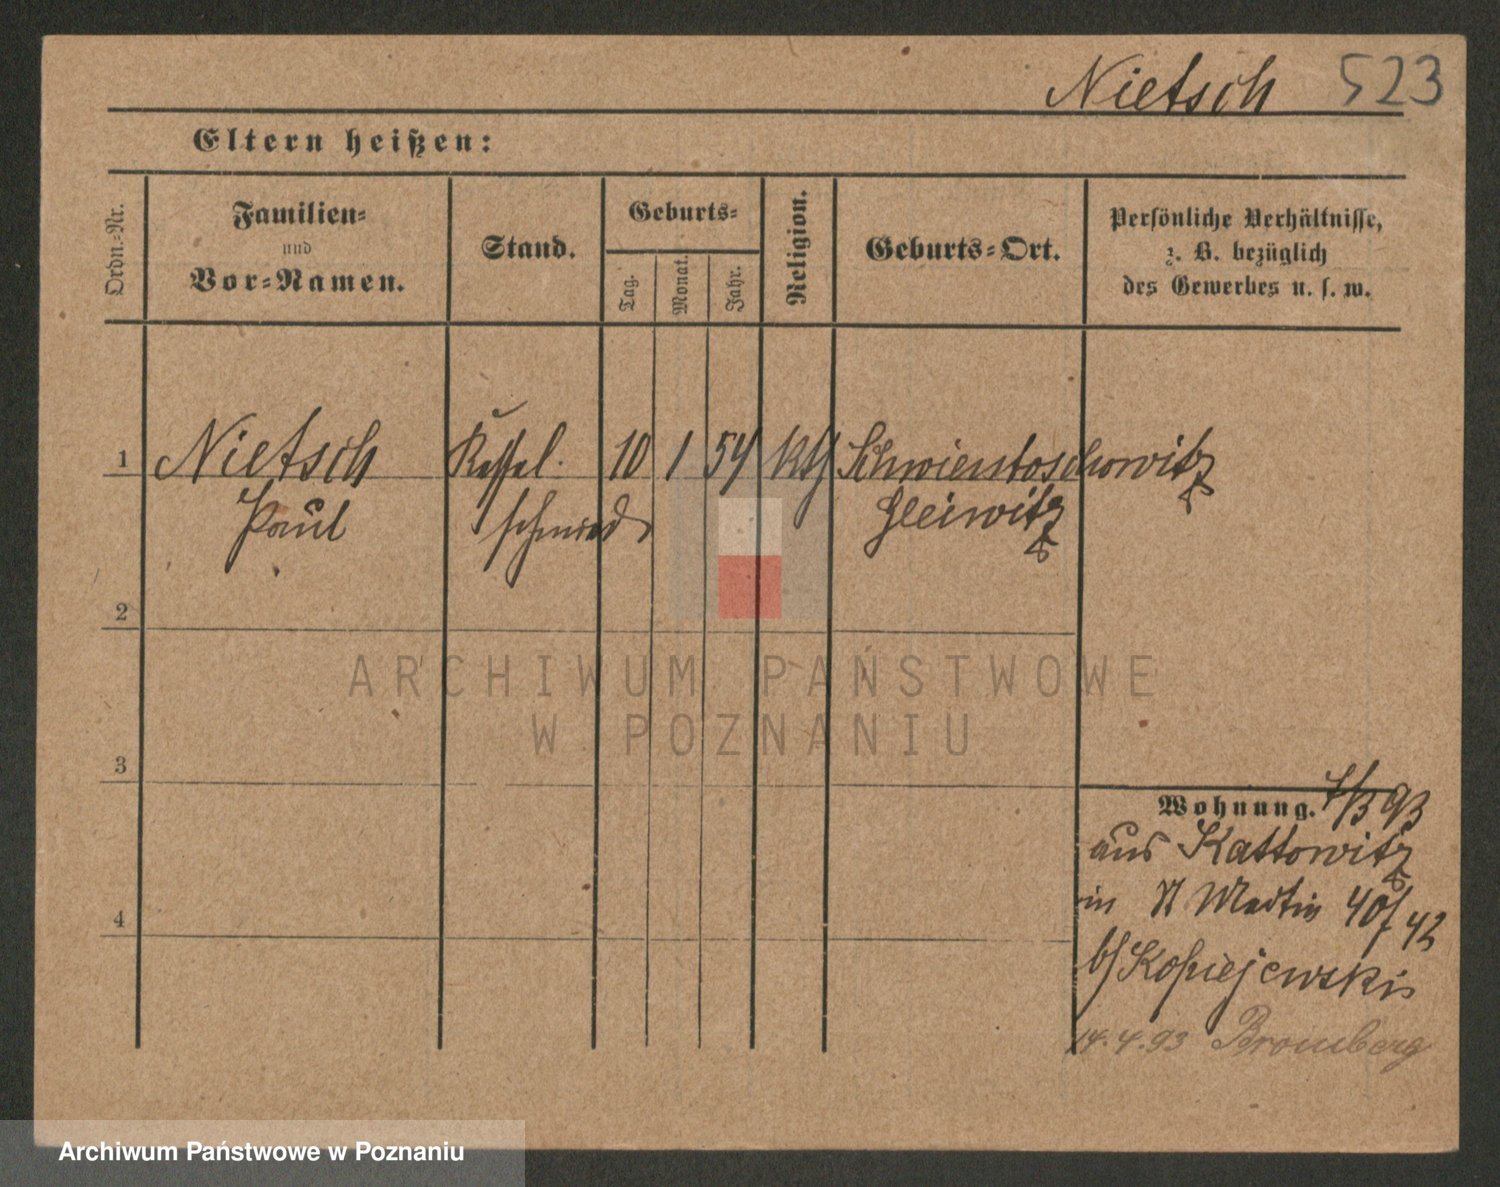 Nietsch 523
Eltern heißen:
Ordn.-Nr.
Familien-
und
Vor-Namen.
Stand.
Geburts-
Tag.
Monat.
Jahr.
Religion.
Geburts-Ort.
Persönliche Verhältnisse,
z. B. bezüglich
des Gewerbes u. s. w.
1 Nietsch Kessel. 10 1 54 kth Schwientoschowitz
Paul schmied Gleiwitz
2
3
4
Wohnung. 7/3 93
aus Kattowitz
in St Martin 40/42
b/ Kopiejewski
14.4.93 Bromberg
ARCHIWUM PAŃSTWOWE
W POZNANIU
Archiwum Państwowe w Poznaniu